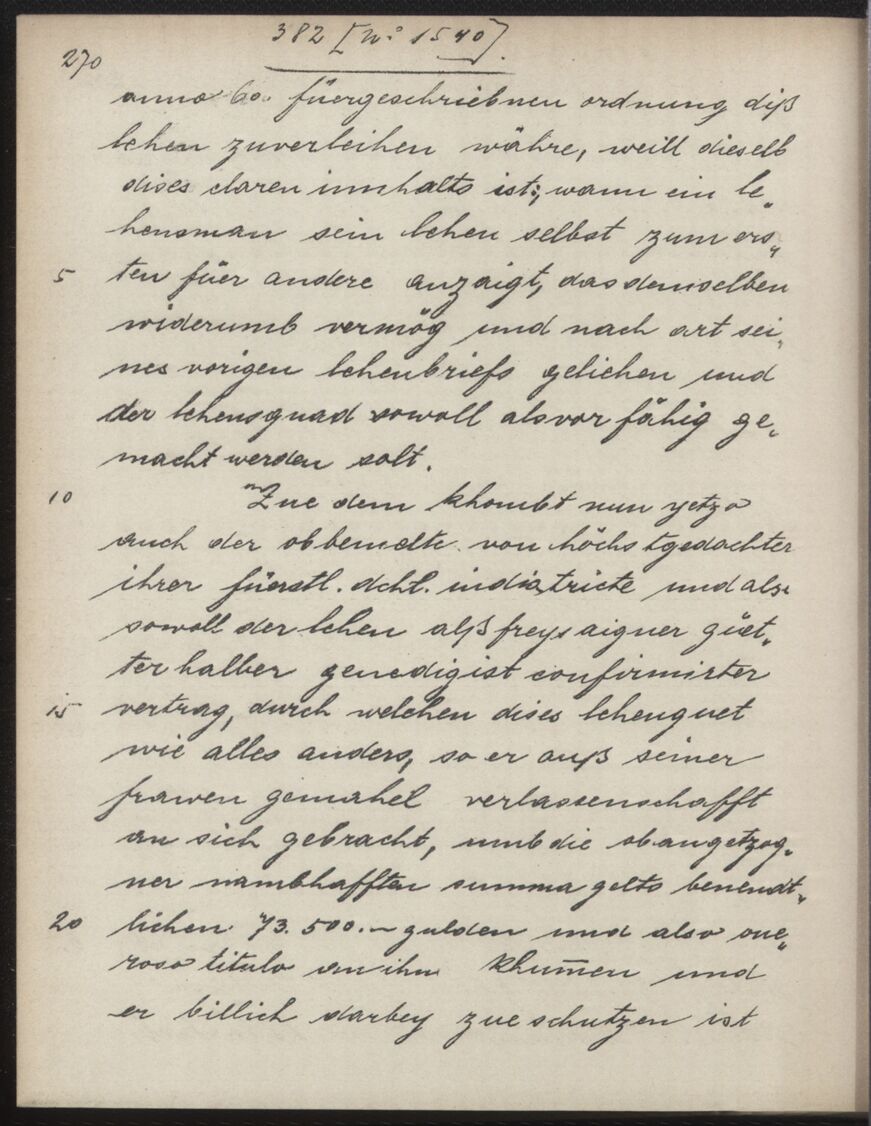 382 [No 1540].
270
anno 60. füergeschriebnen ordnung diß
lehen zuverleihen währe, weill dieselb
dises claren innhalts ist:, wann ein le„
hensman sein lehen selbst zum ers„
5 ten füer andere anzaigt, das demselben
widerumb vermög und nach art sei„
nes vorigen lehenbriefs gelichen und
der lehensgnad sowoll als vor fähig ge„
macht werden solt.
10 Zue dem khombt nun yetzo
auch der obbemelte von höchstgedachter
ihrer fürstl. dcht. und also
sowoll der lehen alß freys aigner güet„
ter halber genedigist confirmirter
15 vertrag, durch welchen dises lehenguet
wie alles anders, so er auß seiner
frawen gemahel verlassenschafft
an sich gebracht, umb die obangetzog„
ner nambhafften summa gelts benendt„
20 lichen 73.500.– gulden und also one„
roso titulo an ihn khum̄en und
er billich darbey zue schutzen ist